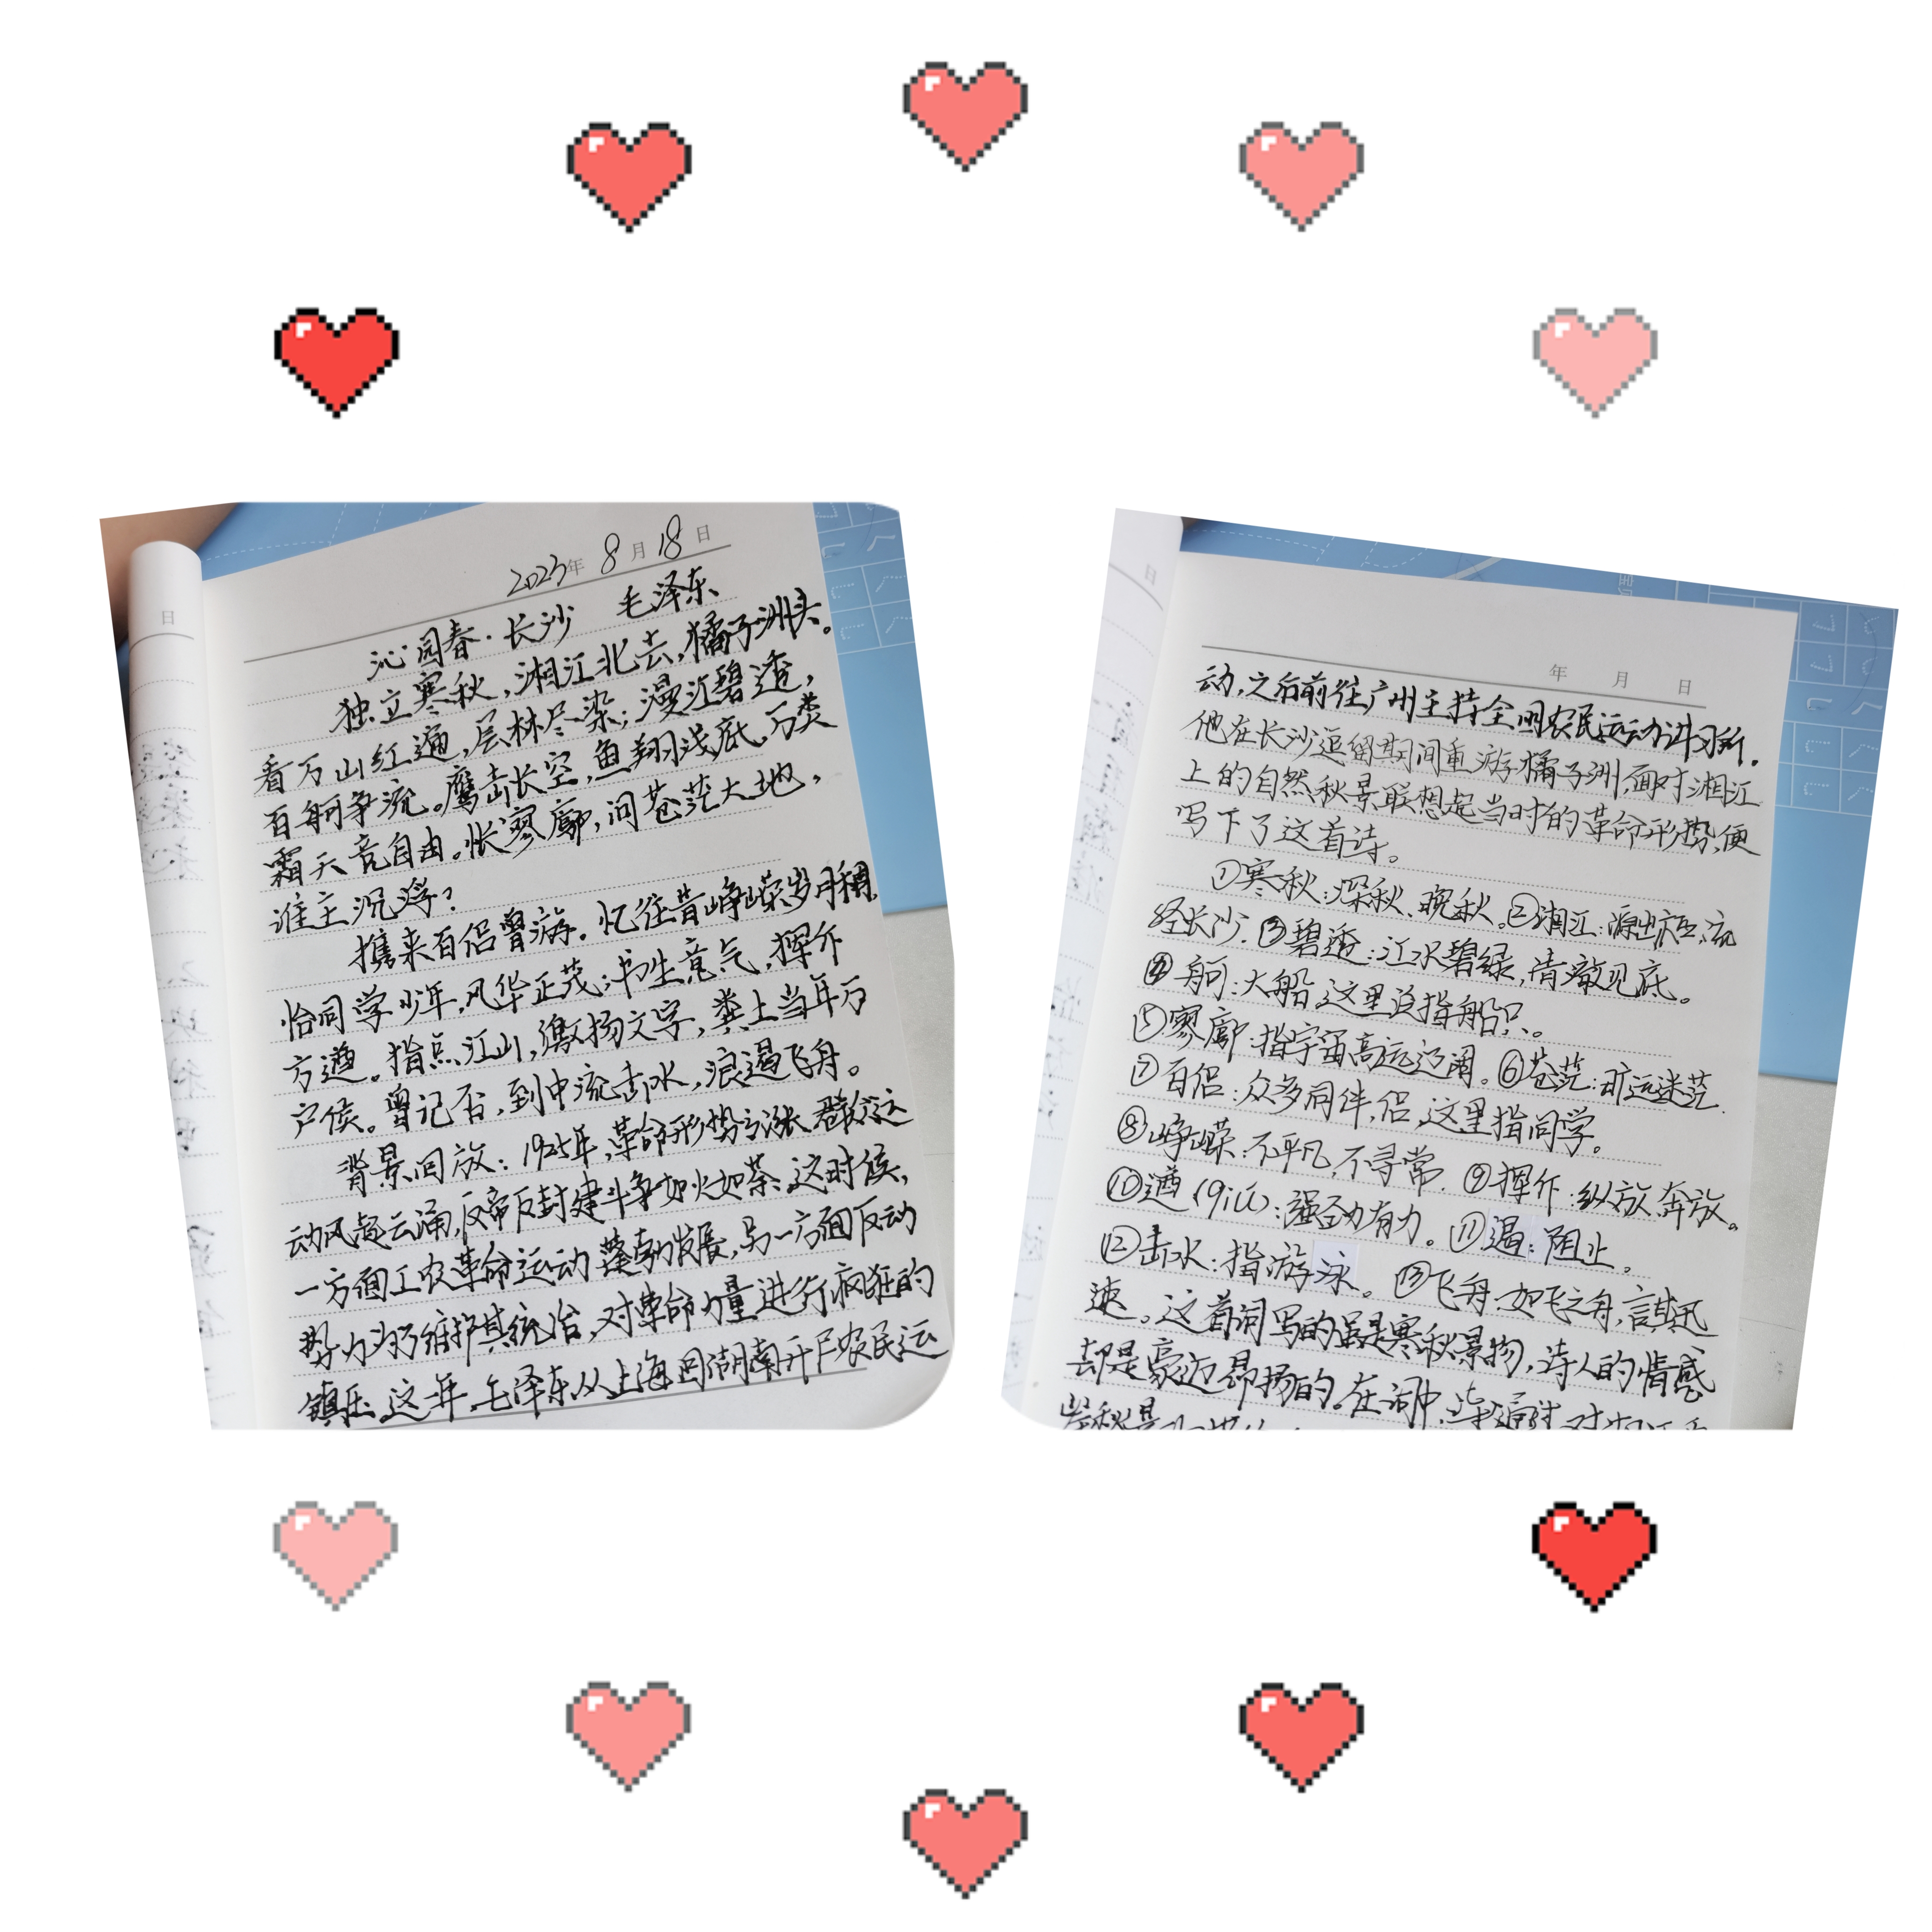 2023年 8月 18日
沁园春·长沙 毛泽东
独立寒秋，湘江北去，橘子洲头。
看万山红遍，层林尽染；漫江碧透，
百舸争流。鹰击长空，鱼翔浅底，万类
霜天竞自由。怅寥廓，问苍茫大地，
谁主沉浮？
携来百侣曾游。忆往昔峥嵘岁月稠。
恰同学少年，风华正茂；书生意气，挥斥
方遒。指点江山，激扬文字，粪土当年万
户侯。曾记否，到中流击水，浪遏飞舟。
背景回放：1925年，革命形势高涨，群众运
动风起云涌，反帝反封建斗争如火如荼，这时候，
一方面工农革命运动蓬勃发展，另一方面反动
势力为维护其统治，对革命力量进行疯狂的
镇压。这一年，毛泽东从上海回湖南开展农民运
日
年 月 日
动，之后前往广州主持全国农民运动讲习所。
他在长沙逗留期间重游橘子洲，面对湘江
上的自然秋景联想起当时的革命形势，便
写下了这首诗。
①寒秋：深秋、晚秋。②湘江：源出广西，流
经长沙。③碧透：江水碧绿，清澈见底。
④舸：大船，这里泛指船只。
⑤寥廓：指宇宙高远辽阔。⑥苍茫：旷远迷茫。
⑦百侣：众多同伴，侣，这里指同学。
⑧峥嵘：不平凡，不寻常。⑨挥斥：纵放，奔放。
⑩遒（qiú）：强劲有力。⑪遏：阻止。
⑫击水：指游泳。⑬飞舟：如飞之舟，言其迅
速。这首词写的虽是寒秋景物，诗人的情感
却是豪迈昂扬的。在词中，
日